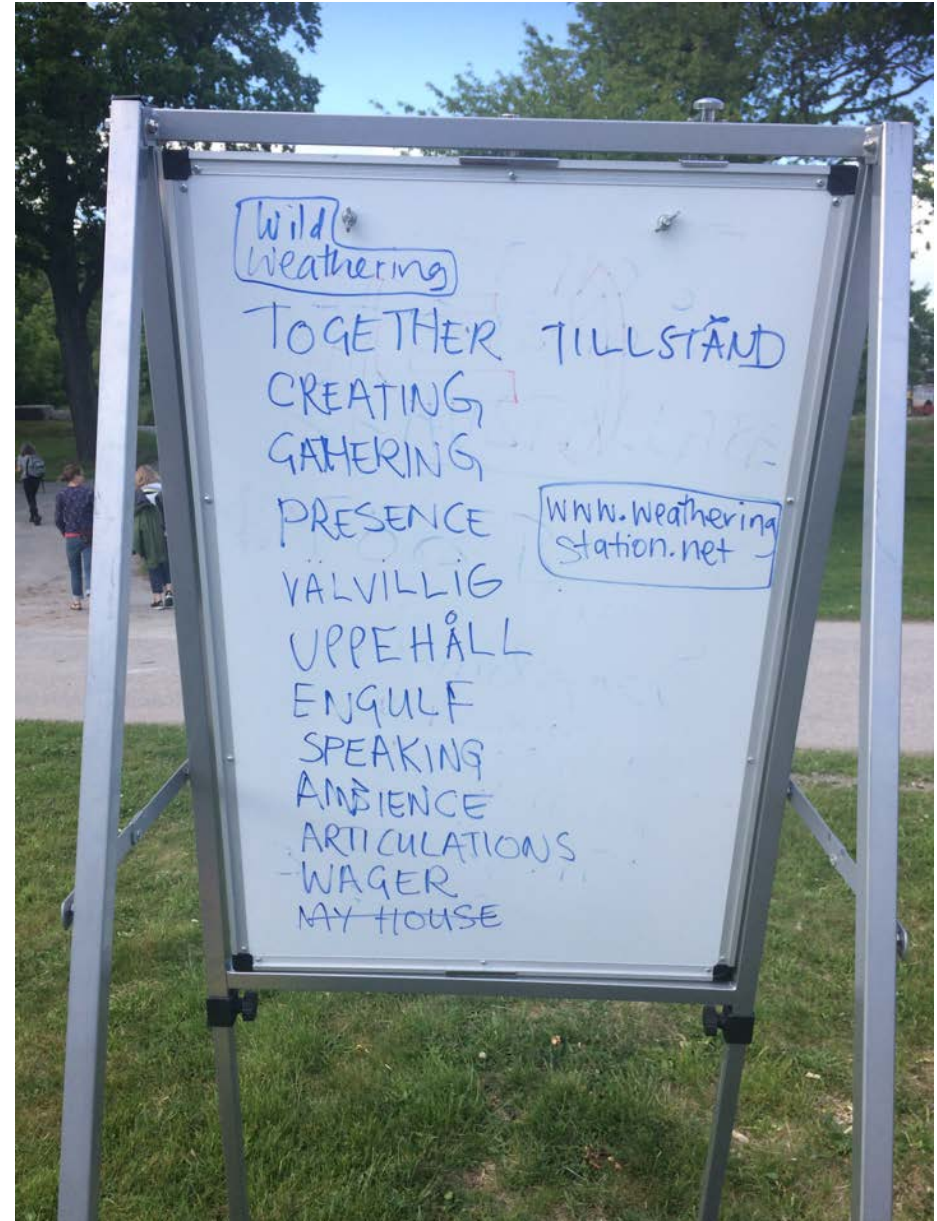 Wild
Weathering
TOGETHER TILLSTÅND
CREATING
GATHERING
PRESENCE
www.weathering
station.net
VÄLVILLIG
UPPEHÅLL
ENGULF
SPEAKING
AMBIENCE
ARTICULATIONS
-WAGER
MY HOUSE